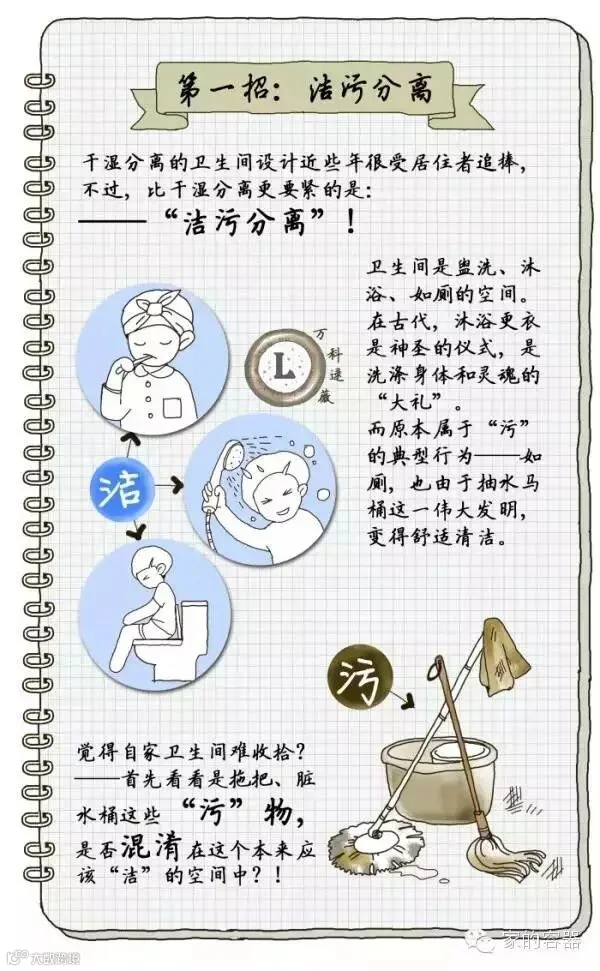 第一招：洁污分离
干湿分离的卫生间设计近些年很受居住者追捧，
不过，比干湿分离更要紧的是：
——“洁污分离”！
卫生间是盥洗、沐
浴、如厕的空间。
在古代，沐浴更衣
是神圣的仪式，是
洗涤身体和灵魂的
“大礼”。
而原本属于“污”
的典型行为——如
厕，也由于抽水马
桶这一伟大发明，
变得舒适清洁。
万科速薇
L
洁
污
觉得自家卫生间难收拾？
——首先看看是拖把、脏
水桶这些“污”物，
是否混淆在这个本来应
该“洁”的空间中？！
家的容器